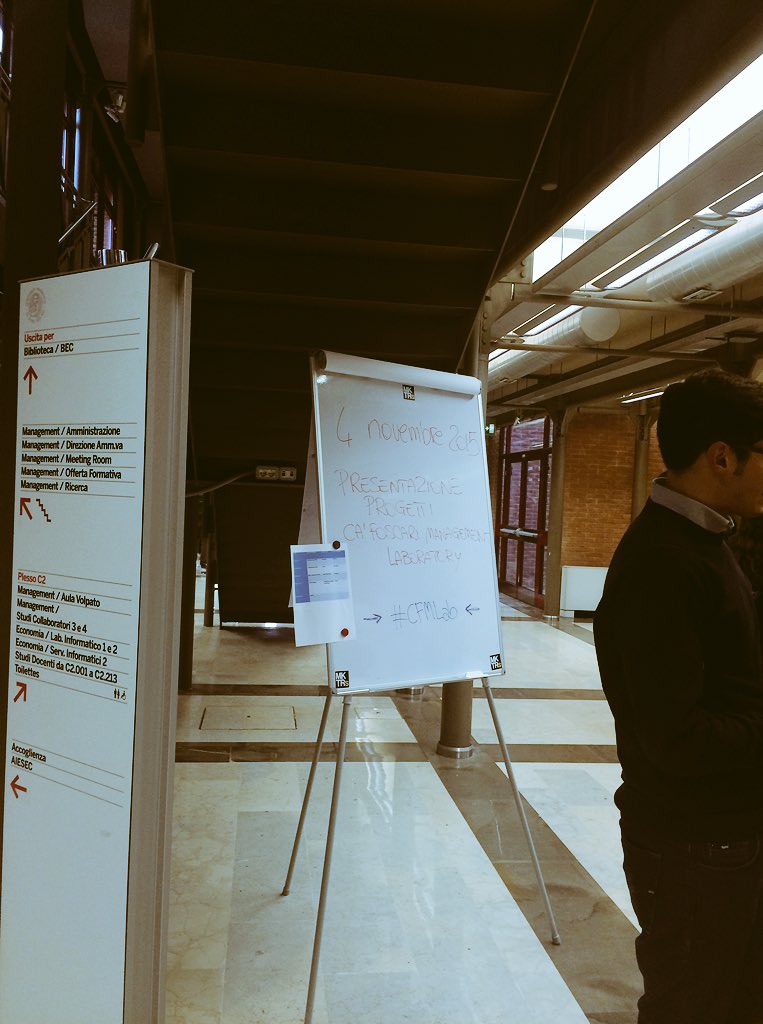 Uscita per
Biblioteca / BEC
Management / Amministrazione
Management / Direzione Amm.va
Management / Meeting Room
Management / Offerta Formativa
Management / Ricerca
Plesso C2
Management / Aula Volpato
Management /
Studi Collaboratori 3 e 4
Economia / Lab. Informatico 1 e 2
Economia / Serv. Informatici 2
Studi Docenti da C2.001 a C2.213
Toilettes
Accoglienza
AIESEC
MK
TRs
4 novembre 2015
PRESENTAZIONE
PROGETTI
CA' FOSCARI MANAGEMENT
LABORATORY
→ #CFMLab ←
MK
TRs
MK
TRs